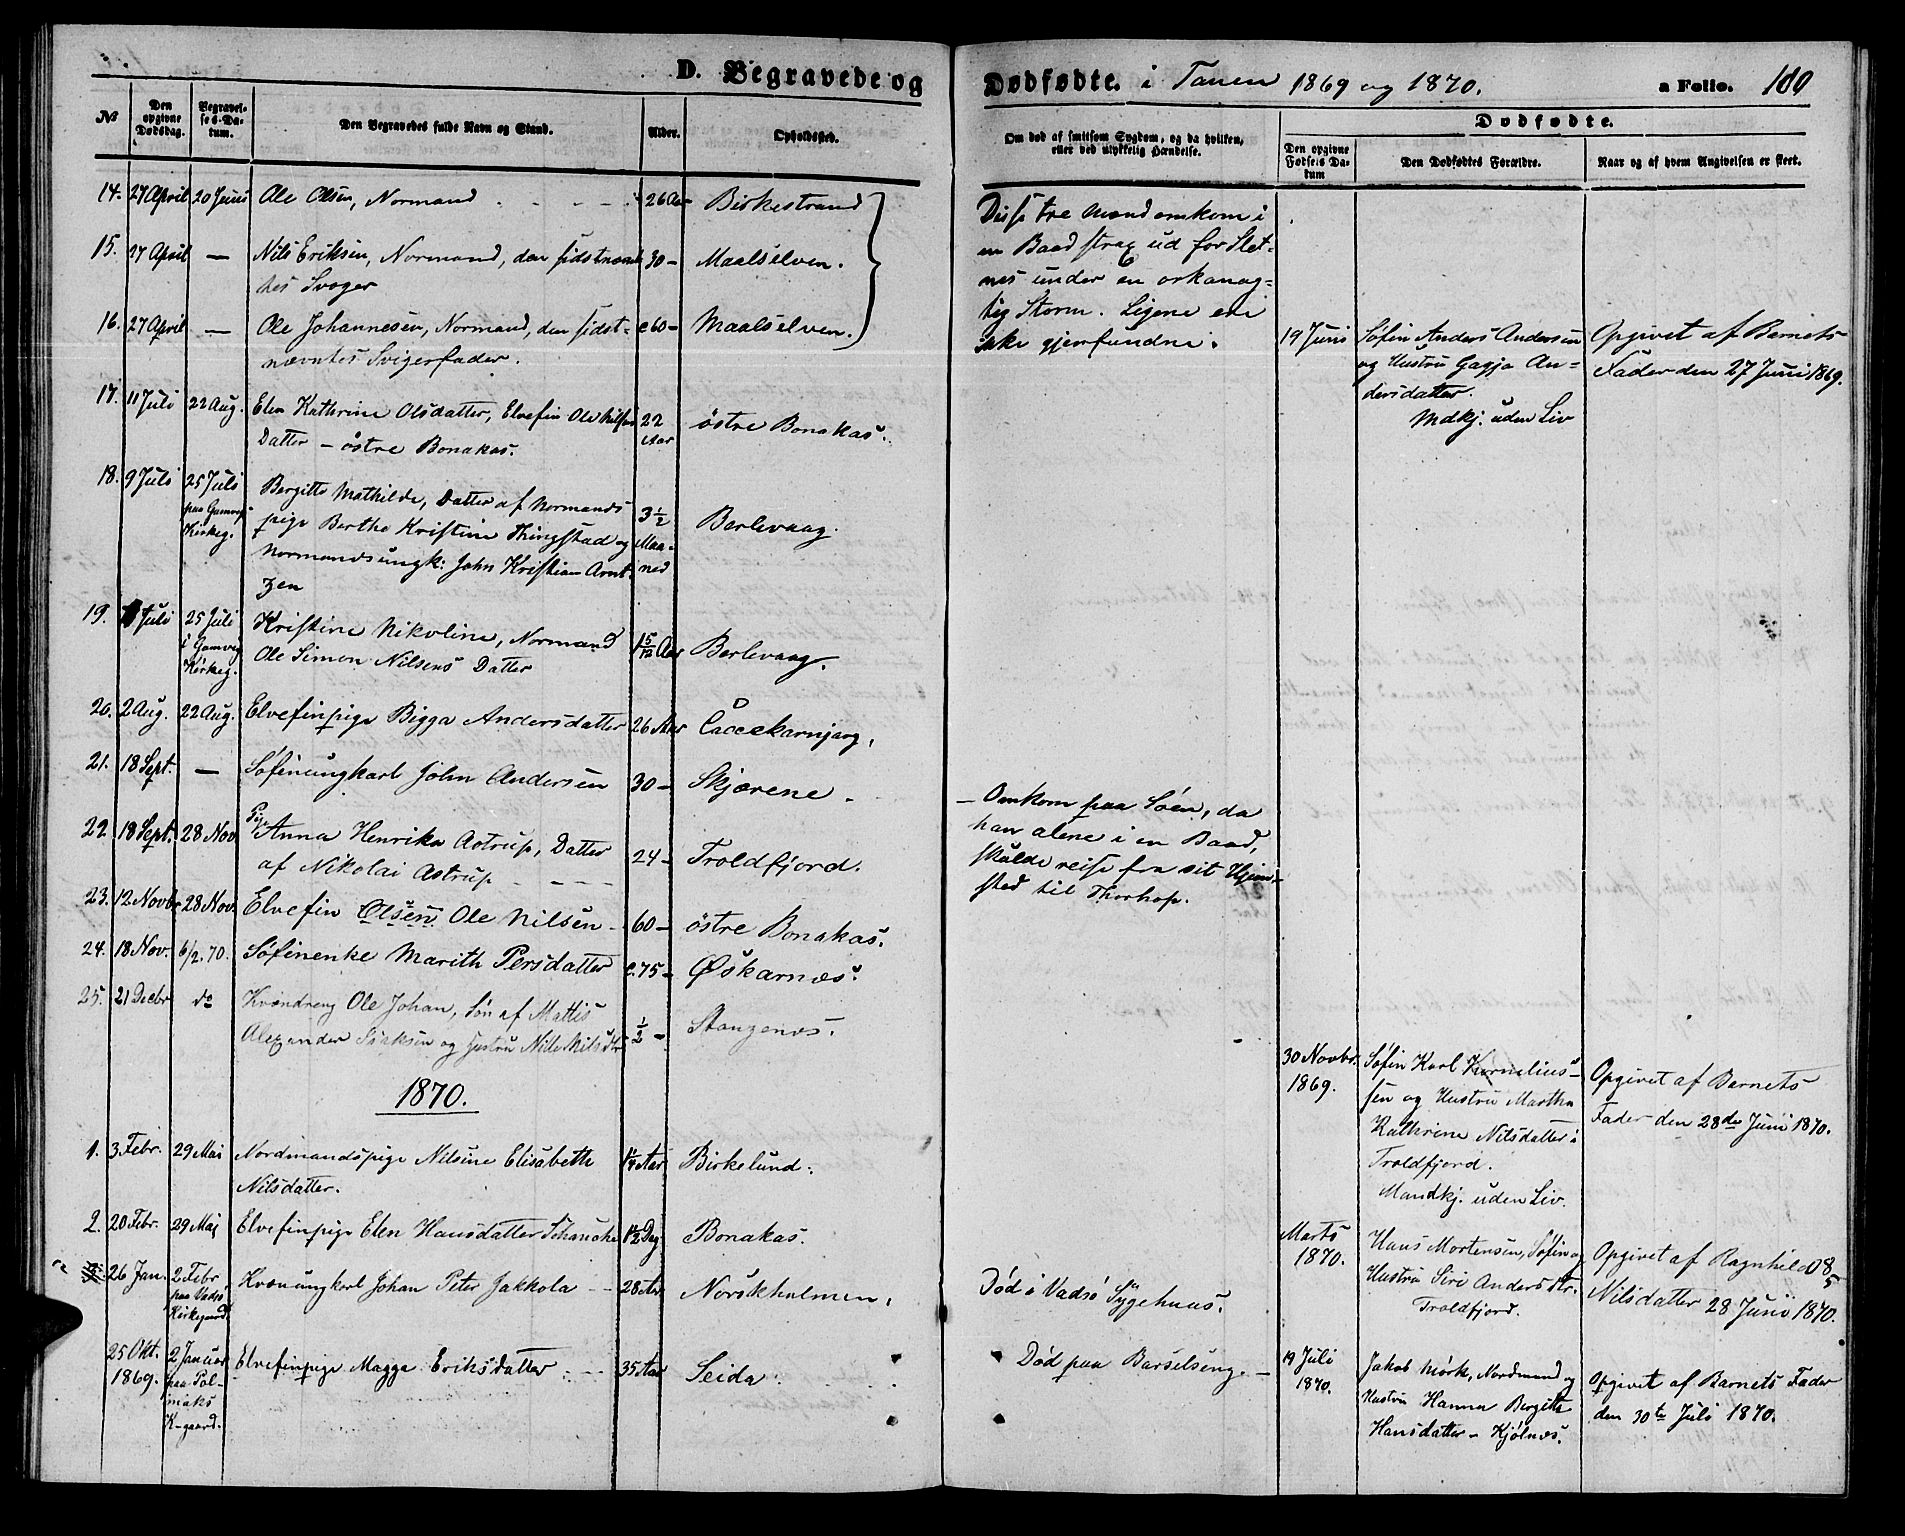 D. Begravede og
Dødfødte. i Tanen 1869 og 1870.
a Folio. 180
№
Den opgivne Dødsdag.
Begravelses-Datum.
Den Begravedes fulde Navn og Stand.
Alder.
Opholdssted.
Om død af smitsom Sygdom, og da hvilken,
eller ved ulykkelig Hændelse.
Dødfødte.
Den opgivne Fødsels Datum
Den Dødfødtes Forældre.
Naar og af hvem Angivelsen er skeet.
14. 27 April 20 Juni Ole Olsen, Normand 26 Aar Birkestrand
15. 27 April — Nils Eriksen, Normand, den sidstnævn 30 — Maalselven.
tes Svoger
16. 27 April — Ole Johannesen, Normand, den sidst- c 60 — Maalselven.
nævntes Svigerfader.
Disse tre Mænd omkom i
en Baad strax ud for Slet-
nes under en orkanag-
tig Storm. Ligene ere
ikke gjenfundne.
19 Juni Søfin Anders Andersen
og Hustru Gagja An-
dersdatter.
Mdkj. uden Liv
Opgivet af Barnets
Fader den 27 Juni 1869.
17. 11 Juli 22 Aug. Elen Kathrine Olsdatter, Elvefin Ole Nilsens 22 Aar østre Bonakas.
Datter — østre Bonakas.
18. 9 Juli 25 Juli paa Gamvig Kirkeg. Bergitte Mathilde, Datter af Normands 3½ Maaned Berlevaag.
pige Berthe Kristine Thingstad og
Normandsungk: John Kristian Arnt-
zen
19. 1 Juli 25 Juli i Gamvig Kirkeg. Kristine Nikoline, Normand 1 5/12 Aar Berlevaag.
Ole Simon Nilsens Datter
20. 2 Aug. 22 Aug. Elvefinpige Bigga Andersdatter 26 Aar Caccekarnjarg,
21. 18 Sept. — Søfinungkarl John Andersen 30 — Skjærene.
— Omkom paa Søen, da
han alene i en Baad,
skulde reise fra sit Hjem-
sted til Thorhop.
22. 18 Sept. 28 Nov Pige Anna Henrika Astrup, Datter 24 — Troldfjord.
af Nikolai Astrup
23. 12 Novbr 28 Nov. Elvefin Olsen Ole Nilsen 60 — østre Bonakas.
24. 18 Nov. 6/2. 70. Søfinenke Marith Persdatter c. 75 — Øskarnæs.
25. 21 Decbr do Kvændreng Ole Johan, Søn af Mattis ½ — Stangenæs.
Alexander Isaksen og Hustru
30 Novbr. 1869. Søfin Karl Kornelius-
sen og Hustru Martha
Kathrine Nilsdatter i
Troldfjord.
Mandkj. uden Liv.
Opgivet af Barnets
Fader den 28de Juni 1870.
1870.
1. 3 Febr. 29 Mai Nordmandspige Nilsine Elisabeth 1¼ Aar Birkelund.
Nilsdatter.
2. 20 Febr. 29 Mai Elvefinpige Elen Hansdatter Schanche 1½ Dag Bonakas.
Marts 1870. Hans Mortensen, Søfin og
Hustru Siri Andersdtr.
Troldfjord.
Opgivet af Ragnhild
Nilsdatter 28 Juni 1870.
26 Jan. 2 Febr paa Vadsø Kirkegaard Kvænungkarl Johan Peter Jakkola 28 Aar Norskholmen,
Død i Vadsø Sygehuus.
25 Okt. 1869. 2 Januar paa Polmaks K-gaard. Elvefinpige Magga Eriksdatter 35 Aar Seida
Død paa Barselseng.
19 Juli 1870. Jakob Mørk, Nordmand og
Hustru Hanna Bergitte
Hansdatter — Kjølnæs.
Opgivet af Barnets Fader
den 30te Juli 1870.